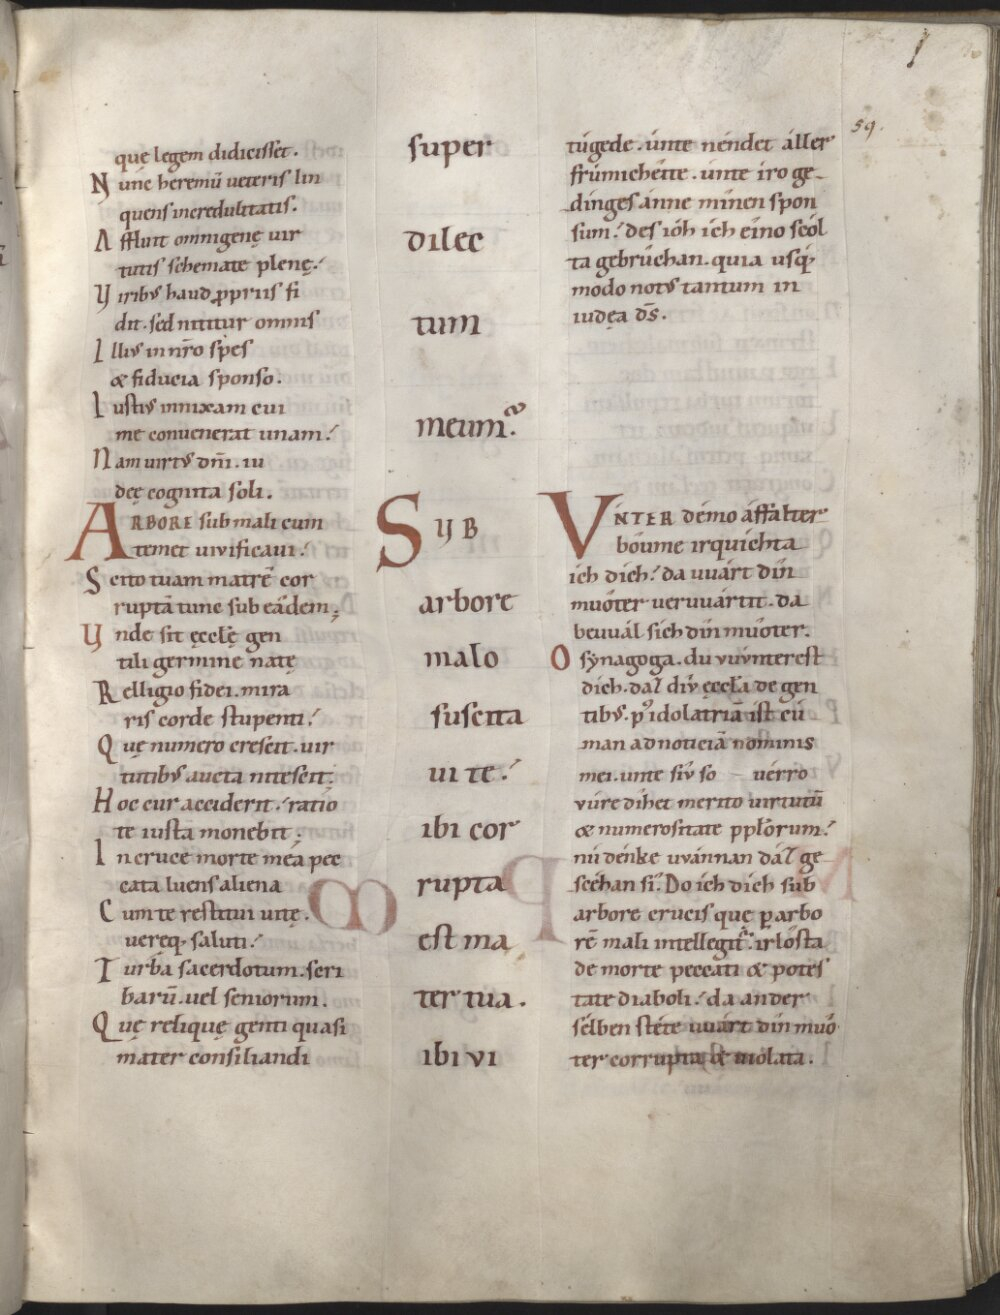 59.
que legem didicisset.
Nunc heremū ueteris lin
quens incredulitatis.
Affluit omnigenę uir
tutis schemate plenę.
Viribꝰ haud ꝓpriis fi
dit. sed nititur omnis
Illiꝰ in nr̄o spes
& fiducia sponso.
Iustiꝰ innixam cui
me conuenerat unam.
Nam uirtꝰ dn̄i. iu
dęę cognita soli.
ARBORE sub mali cum
temet uiuificaui.
Scito tuam matrē cor
ruptā tunc sub eādem;
Vnde sit ęcclę gen
tili germine natę
Relligio fidei. mira
ris corde stupenti.
Quę numero crescit. uir
tutibꝰ aucta nitescit.
Hoc cur acciderit. ratio
te iustā monebit;
In cruce morte mea pec
cata luens aliena
Cum te restitui uitę.
uereq; saluti.
Turba sacerdotum. scri
barū. uel seniorum.
Quę reliquę genti quasi
mater consiliandi
super
dilec
tum
meum.
SVB
arbore
malo
suscita
ui te.
ibi cor
rupta
est ma
ter tua.
ibi vi
túgede. únte néndet áller
frúmichêtte. únte iro ge-
dinges ánne mínen spon
sum. des ióh ích eîno scól
ta gebrûchan. quia usq;
modo notꝰ tantum in
iudęa d̄s.
VNTER démo áffalter
bôume irquíchta
ích dích. da uuárt dîn
muôter ueruuártit. da
beuuál sích dîn muôter.
O synagoga. du vuvnterest
dich. daꝉ dív ęccła de gen
tibꝰ. p idolatriā ist cú
man ad noticiā nominis
mei. unte sív so uerro
vúre dihet merito uirtutū
& numerositate pplorum.
nú dénke uvánnan dáꝉ ge
scéhan sí. Do ích dích sub
arbore crucis quę ꝑ arbo
rē mali intellegit. irlôsta
de morte peccati & potes
tate diaboli. da an der
sélben stéte uuárt dîn muô
ter corrupta & uiolata.